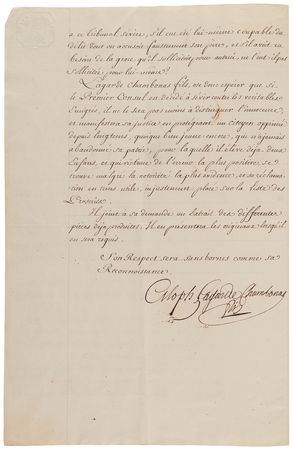 a ce tribunal sévère, s'il eut été lui-même coupable du
délit dont on accusoit faussement son père, et s'il avoit eu
besoin de la grace qu'il sollicitoit pour autrui, ne l'eut-il pas
sollicitée pour lui-même?
Lagarde Chambonas fils, ose donc esperer que si
le Premier Consul est décidé à sévir contre les véritables
émigrés, il ne le sera pas moins à distinguer l'innocence,
et manifestera sa justice en protégeant un citoyen opprimé
depuis longtems, quoique bien jeune encore, qui n'a jamais
abandonné sa patrie, pour laquelle il élève déja deux
Enfans, et qui victime de l'erreur la plus positive, se
trouve malgré la notoriété la plus évidente, et sa réclamation
en tems utile, injustement placé sur la liste des
Proscrits.
Il joint à sa demande un Extrait des différentes
pièces déja produites. Il en présentera les originaux lorsqu'il
en sera requis.
Son Respect sera sans bornes comme sa
Reconnoissance.
Lagarde Chambonas
fils